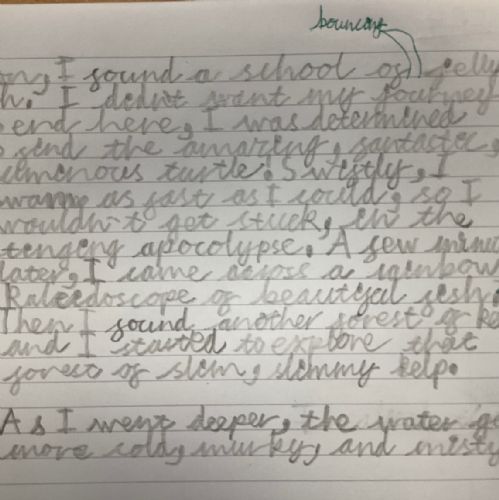 bouncing
on, I found a school of jelly
h. I didn't want my journey
end here, I was determined
find the amazing, fantastic,
luminous turtle. Swiftly, I
swam as fast as I could, so I
wouldn't get stuck, in the
tenging apocolypse. A few minu
later, I came across a rainbow
Kaleidoscope of beautiful fish.
Then I found another forest of ke
and I started to explore that
forest of slim, slimmy kelp.
As I went deeper, the water go
more cold, murky, and misty